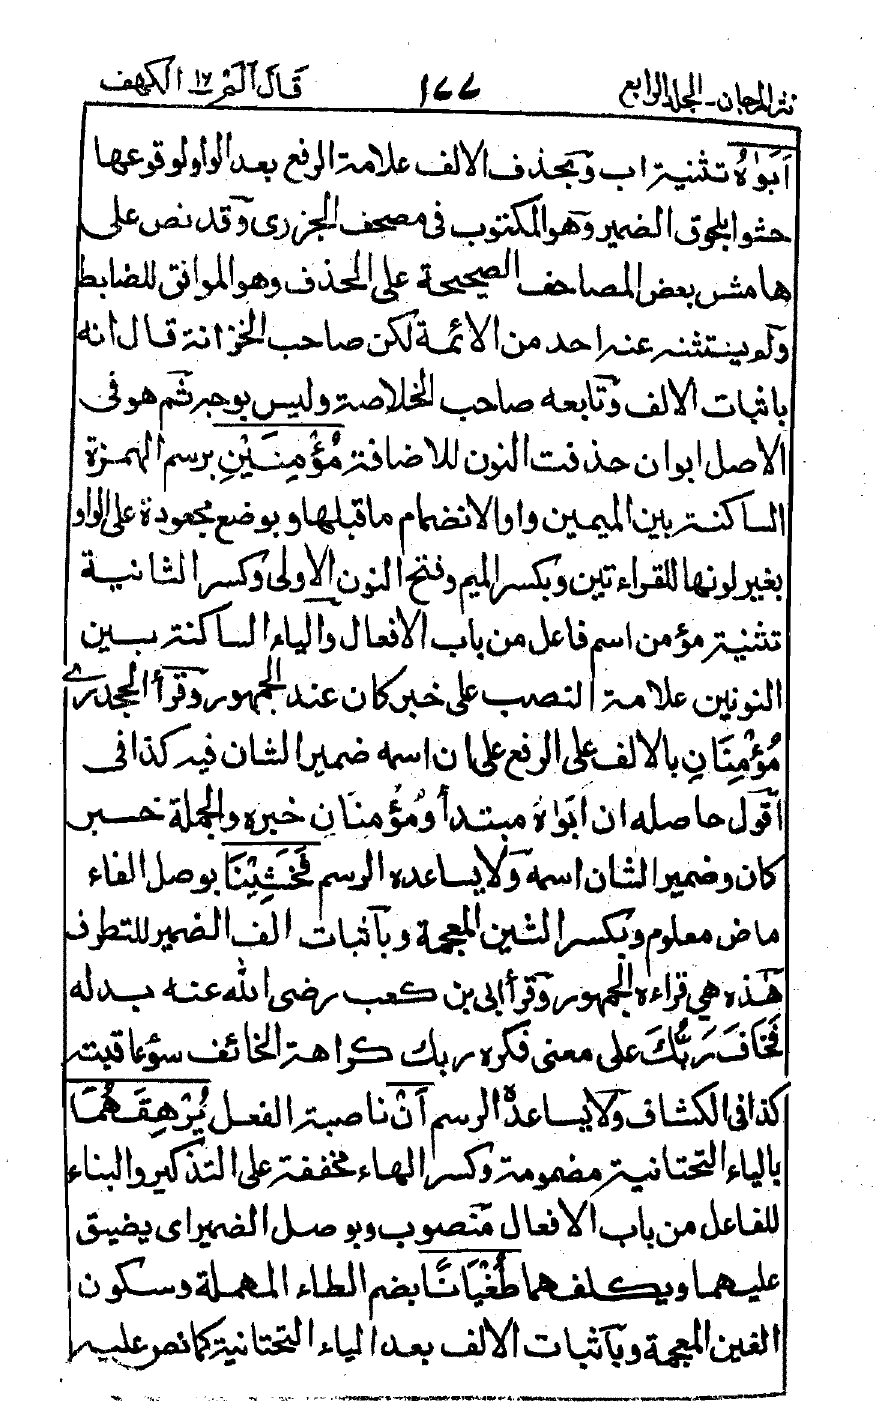 نثر المرجان - المجلد الرابع ١٧٧ قال الم ١٦ الكهف
اَبَوٰهُ تثنية اب وبحذف الالف علامة الرفع بعد الواو لوقوعها
حشوا بلحوق الضمير وهو المكتوب فى مصحف الجزرى وقد نص على
هامش بعض المصاحف الصحيحة على الحذف وهو الموافق للضابط
ولم يستثنه عنه احد من الائمة لكن صاحب الخزانة قال انه
باثبات الالف وتابعه صاحب الخلاصة وليس بوجه ثم هو فى
الاصل ابوان حذفت النون للاضافة مُؤْمِنَيْنِ برسم الهمزة
الساكنة بين الميمين واوا لانضمام ما قبلها وبوضع مجعودة على الواو
بغير لونها للقراءتين وبكسر الميم وفتح النون الاولى وكسر الثانية
تثنية مؤمن اسم فاعل من باب الافعال والياء الساكنة بين
النونين علامة النصب على خبر كان عند الجمهور وقرأ الجحدرى
مُؤْمِنَانِ بالالف على الرفع على ان اسمه ضمير الشان فيه كذا فى
اقول حاصله ان ابَوَاهُ مبتدأ ومُؤْمِنَانِ خبره والجملة خبر
كان وضمير الشان اسمه ولا يساعده الرسم فَخَشِيْنَا بوصل الفاء
ماض معلوم وبكسر الشين المعجمة وباثبات الف الضمير للتطرف
هذه هى قراءة الجمهور وقرأ ابى بن كعب رضى الله عنه بدله
فَخَافَ رَبُّكَ على معنى فكره ربك كراهة الخائف سؤ عاقبته
كذا فى الكشاف ولا يساعده الرسم اَنْ ناصبة الفعل يُرْهِقَهُمَا
بالياء التحتانية مضمومة وكسر الهاء مخففة على التذكير والبناء
للفاعل من باب الافعال منصوب وبوصل الضمير اى يضيق
عليهما ويكلفهما طُغْيَانًا بضم الطاء المهملة وسكون
الغين المعجمة وباثبات الالف بعد الياء التحتانية كما نص عليه